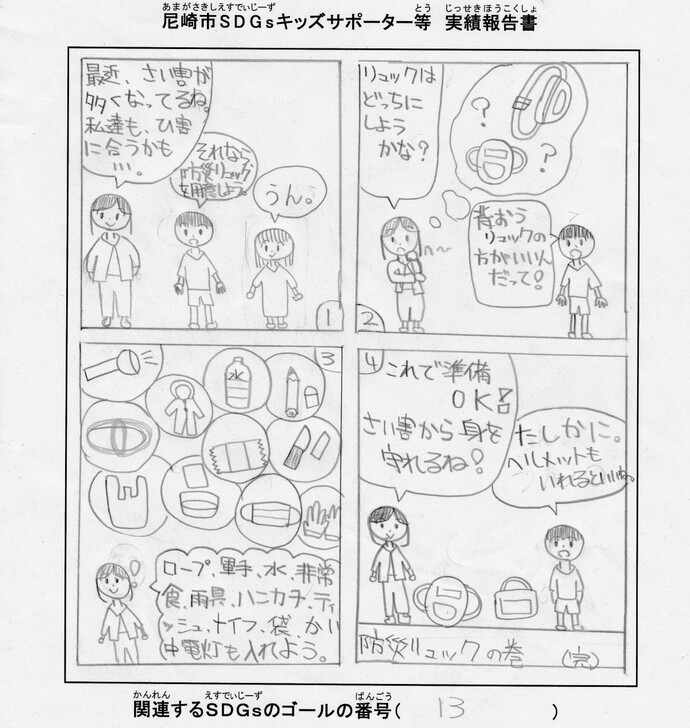 あまがさきしえすでぃじーず
とう
じっせきほうこくしょ
尼崎市SDGsキッズサポーター等 実績報告書
最近、さい害が
多くなってるね。
私達も、ひ害
に合うかも
…。
それなら、
防災リュック
を用意しよう。
うん。
1
リュックは
どっちに
しよう
かな?
?
?
背おう
リュックの
方がいいん
だって!
2
3
水
ロープ、軍手、水、非常
食、雨具、ハンカチ、ティ
ッシュ、ナイフ、袋、かい
中電灯も入れよう。
4
これで準備
OK!
さい害から身を
守れるね!
たしかに。
ヘルメットも
いれるといいね。
防災リュックの巻 (完)
かんれん
えすでぃじーず
ばんごう
関連するSDGsのゴールの番号( 13 )